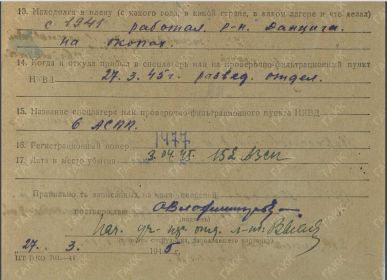 13. Находился в плену (с какого года, в какой стране, в каком лагере и что делал)
с 1941 работал р-н. Данцига.
на
14. Когда и откуда прибыл в спецлагерь или на проверочно-фильтрационный пункт
НКВД 27.3.45г. развед. отдел.
15. Название спецлагеря или проверочно-фильтрационного пункта НКВД
6 АСПП.
16. Регистрационный номер 1477
17. Дата и место убытия 3.04.45. 152 АЗСП
Правильность записанных
подтверждаю
(подпись)
Нач. уч-
27. 3. 1945 г.